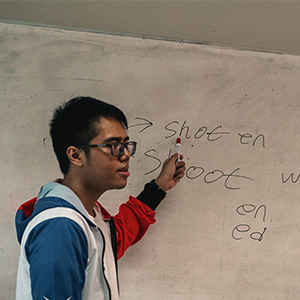 → shot en
Shoot w
en
ed